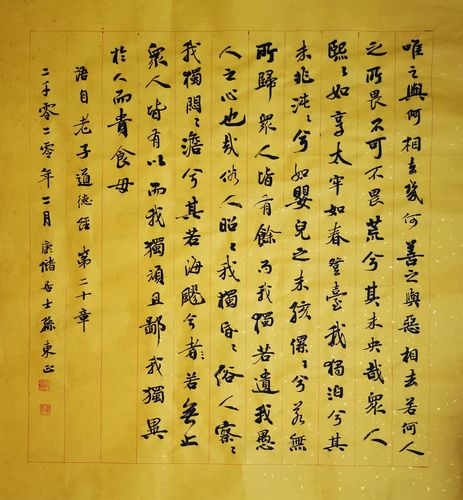 唯之與何相去幾何善之與惡相去若何人
之所畏不可不畏荒兮其未央哉衆人
熙〻如享太牢如春登臺我獨泊兮其
未兆沌〻兮如嬰兒之未孩儽〻兮若無
所歸衆人皆有餘而我獨若遺我愚
人之心也哉俗人昭〻我獨昏〻俗人察〻
我獨悶〻澹兮其若海飂兮者若無止
衆人皆有以而我獨頑且鄙我獨異
於人而貴食母
語自老子道德經 第二十章
二千零二零年二月 康偕居士孫東正